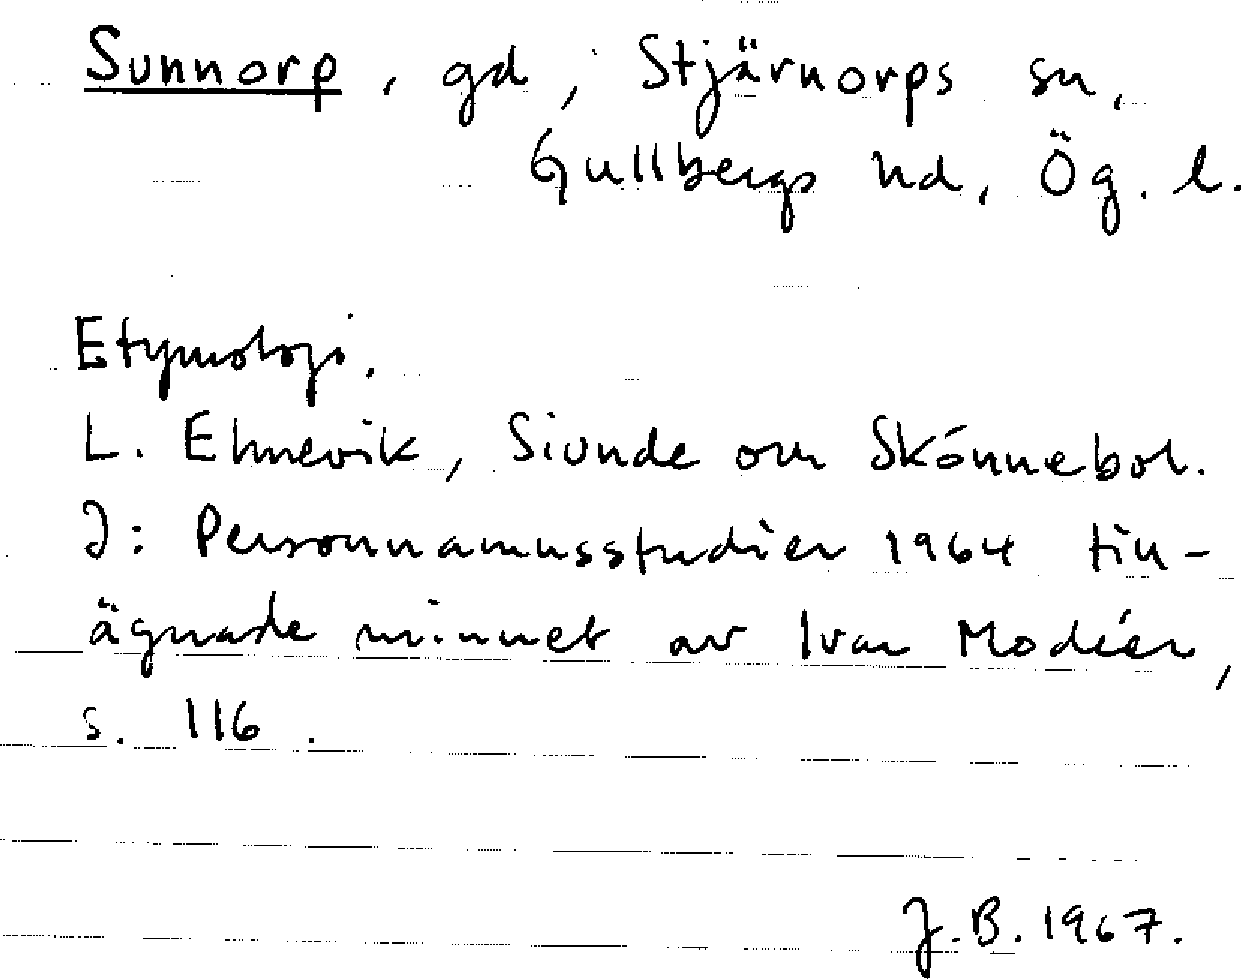 Sunnorp, gd, Stjärnorps sn,
Gullbergs hd, Ög. l.
Etymologi.
L. Elmevik, Siunde om Skónnebol.
I: Personnamnsstudier 1964 till-
ägnade minnet av Ivar Modéer,
s. 116.
J.B. 1967.